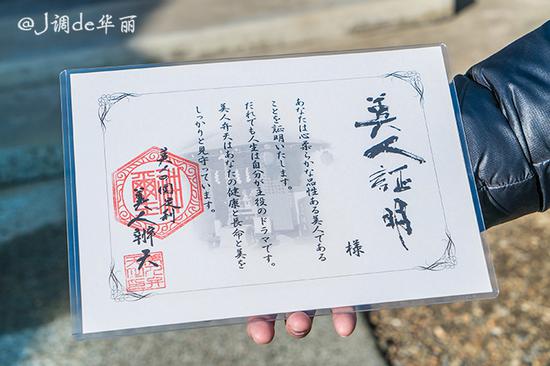 @J调de华丽
美人証明
様
あなたは心柔らかな品性ある美人である
ことを証明いたします。
だれでも人生は自分が主役のドラマです。
美人弁天はあなたの健康と長命と美を
しっかりと見守っています。
美人の国足利
美人辨天